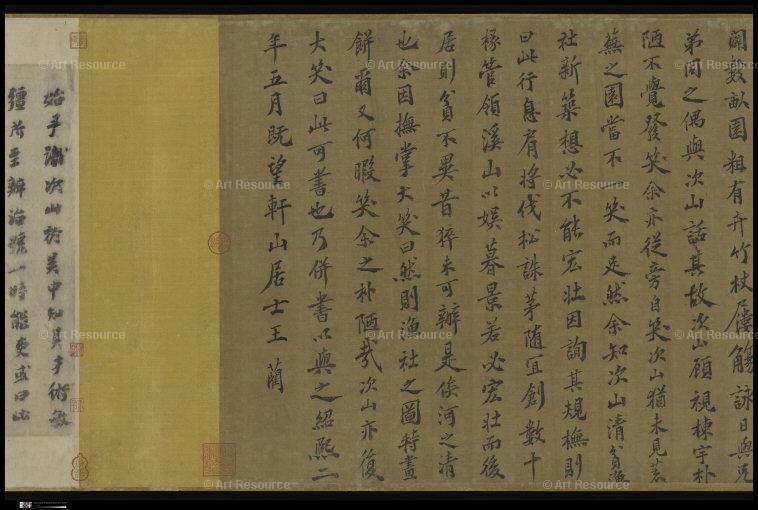 闢數畝園粗有卉竹杖屨觴詠日與兄
弟同之偶與次山話其故次山顧視棟宇朴
陋不覺發笑余亦從旁自笑次山猶未見荒
蕪之園當不一笑而足然余知次山清貧漁
社新築想必不能宏壯因詢其規橅則
曰此行息肩將伐松誅茅隨宜創數十
椽管領溪山以娛暮景若必宏壯而後
居則貧不異昔猝未可辦是俟河之清
也余因撫掌大笑曰然則漁社之圖特畫
餅爾又何暇笑余之朴陋哉次山亦復
大笑曰此可書也乃併書以與之紹熙二
年五月既望軒山居士王藺
始予識次山於吴中知其才術敏
彊所至辦治號一時能吏或曰此
© Art Resource
© Art Resource
© Art Resource
© Art Resource
© Art Resource
© Art Resource
© Art Resource
© Art Resource
© Art Resource
© Art Resource
© Art Resource